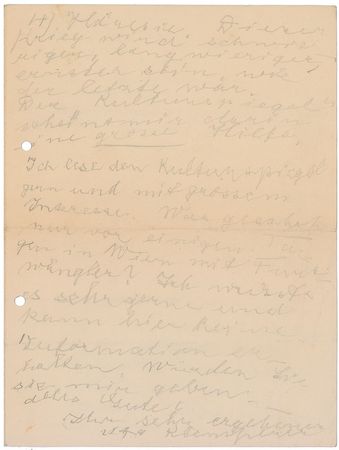 4) Dieser
Krieg wird schwie
riger, langwieriger,
ernster sein, wie
der letzte war.
Der Kulturspiegel
scheint mir darin
ine grosse Hilfe.
Ich lese den Kulturspiegel
gern und mit grossem
Interesse. Was geschah
nur vor einigen Ta
en in Wien mit Furt
wängler? Ich wüsste
es sehr gerne und
kann hier keine
Information er
halten. Würden Sie
sie mir geben?
alles Gute!
Ihr sehr ergebener